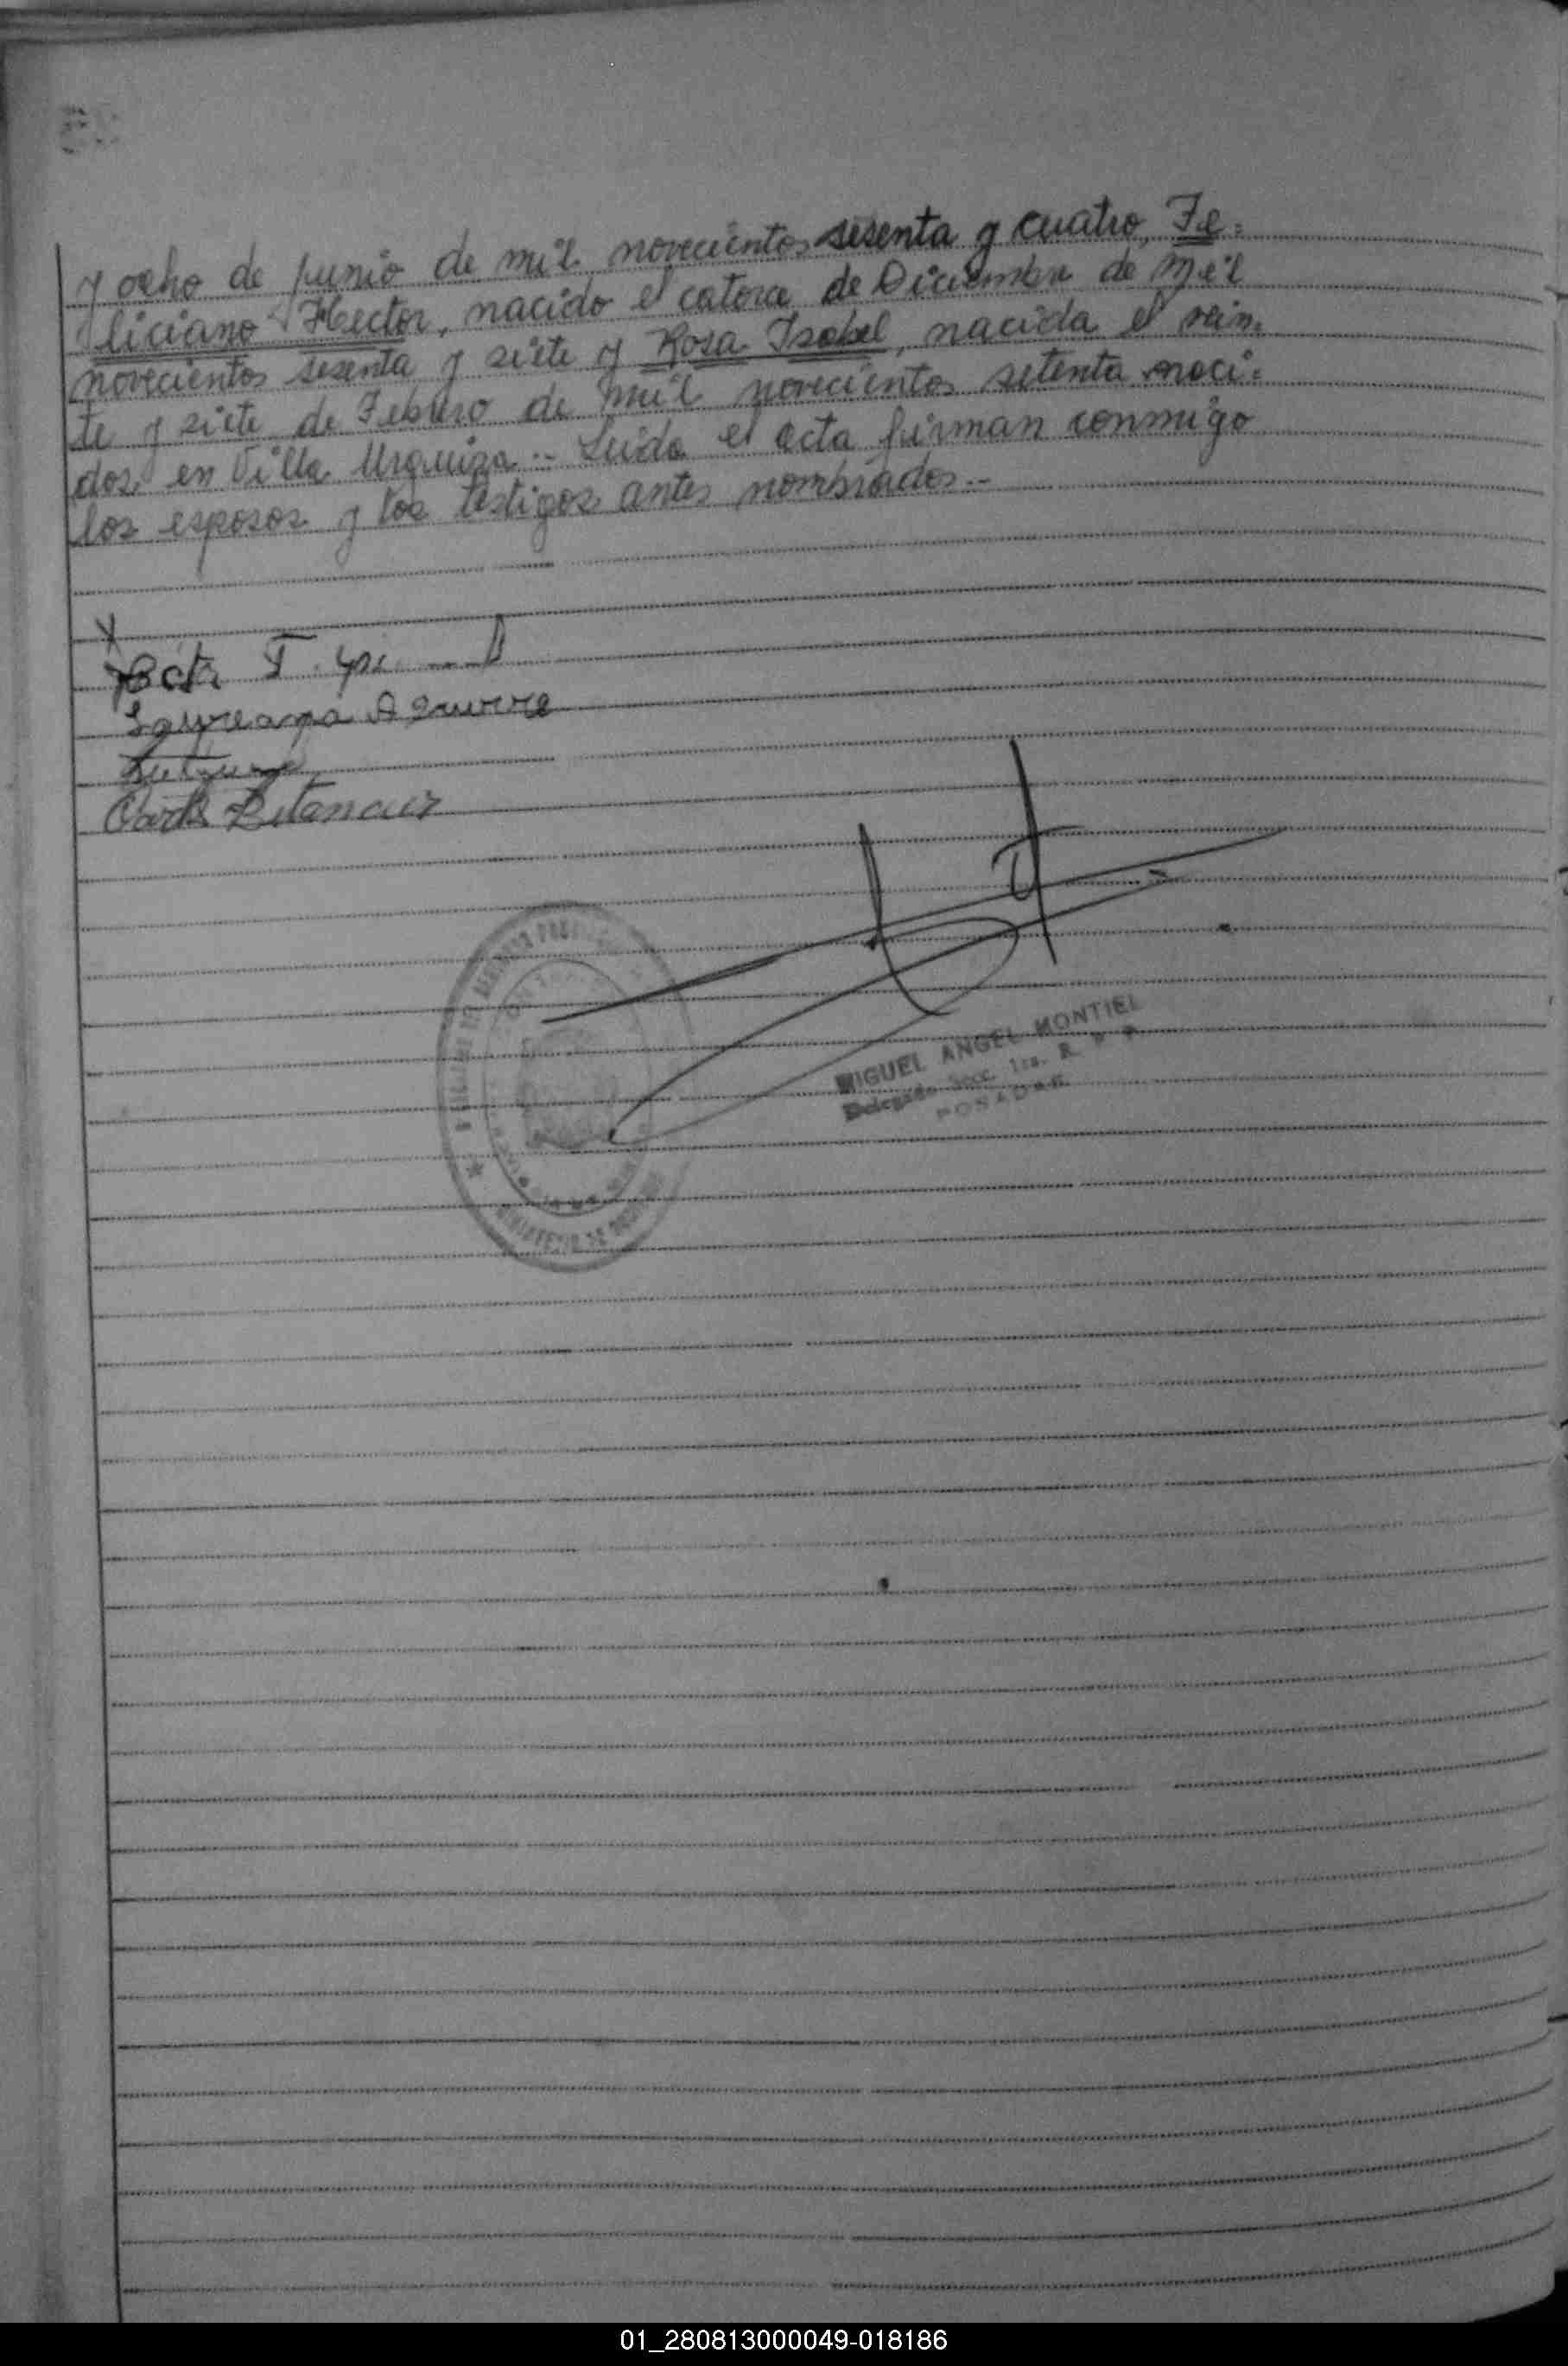 y ocho de junio de mil novecientos sesenta y cuatro, Fe=
liciano Hector, nacido el catorce de Diciembre de mil
novecientos sesenta y siete y Rosa Isabel, nacida el vein=
te y siete de Febrero de mil novecientos setenta naci=
dos en Villa Urquiza.- Leida el acta firman conmigo
los esposos y los testigos antes nombrados.-
Laureana Aguirre
Betancur
MIGUEL ANGEL MONTIEL
Delegado Secc. 1ra. R.
POSADAS
01_280813000049-018186